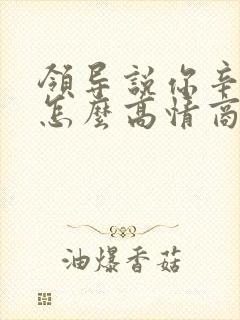 領导說你辛
怎麼高情商
油爆香菇